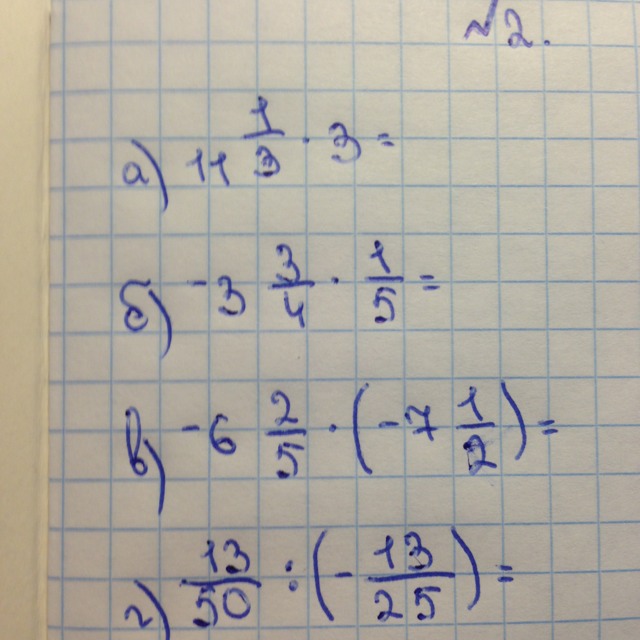 №2.
а) 11 1/3 · 3 =
б) -3 3/4 · 1/5 =
в) -6 2/5 · (-7 1/2) =
г) 13/50 : (-13/25) =